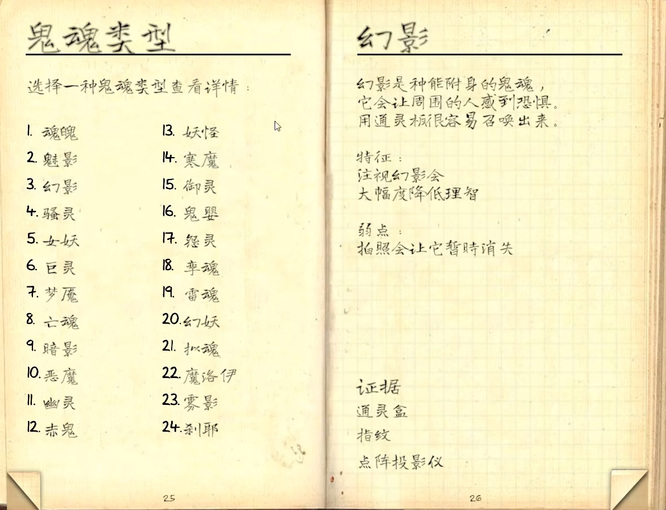 鬼魂类型
选择一种鬼魂类型查看详情：
1. 魂魄
2. 魅影
3. 幻影
4. 骚灵
5. 女妖
6. 巨灵
7. 梦魇
8. 亡魂
9. 暗影
10. 恶魔
11. 幽灵
12. 赤鬼
13. 妖怪
14. 寒魔
15. 御灵
16. 鬼婴
17. 怨灵
18. 孪魂
19. 雷魂
20. 幻妖
21. 拟魂
22. 魔洛伊
23. 雾影
24. 刹耶
25
幻影
幻影是种能附身的鬼魂，
它会让周围的人感到恐惧。
用通灵板很容易召唤出来。
特征：
注视幻影会
大幅度降低理智
弱点：
拍照会让它暂时消失
证据
通灵盒
指纹
点阵投影仪
26